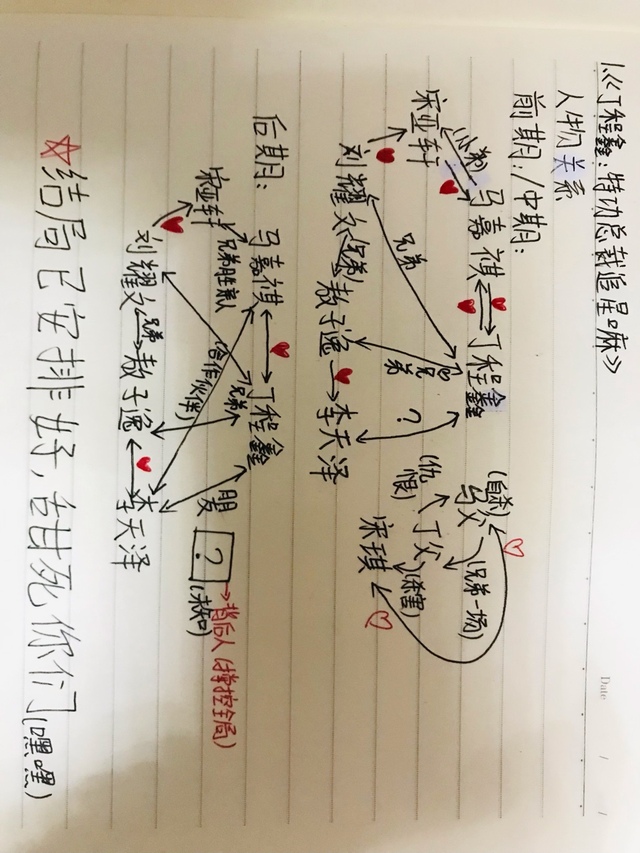 1.《丁程鑫：特功总裁追星嘛》
人物关系
前期：/中期：
马嘉祺 丁程鑫
(自杀)
马父
(兄弟一场)
丁父
(仇恨)
(杀害)
宋琪
宋亚轩
兄弟
兄弟
?
刘耀文 (兄弟) 敖子逸 李天泽
后期：
马嘉祺 丁程鑫
宋亚轩
兄弟胜亲人
兄弟
合作伙伴
朋友
刘耀文 兄弟 敖子逸 李天泽
?
(未知)
背后人(掌控全局)
☆结局已安排好，甜死你们(嘿嘿)
Date / /